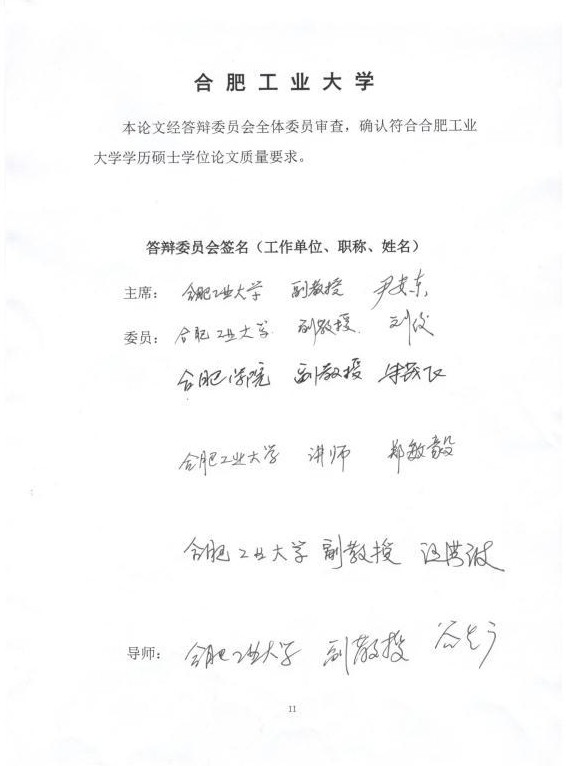 合肥工业大学
本论文经答辩委员会全体委员审查，确认符合合肥工业
大学学历硕士学位论文质量要求。
答辩委员会签名（工作单位、职称、姓名）
主席： 合肥工业大学 副教授 尹安东
委员： 合肥工业大学 副教授 刘俊
合肥学院 副教授
合肥工业大学 讲师 郑敏毅
合肥工业大学 副教授 汪洪波
导师： 合肥工业大学 副教授 谷先广
11